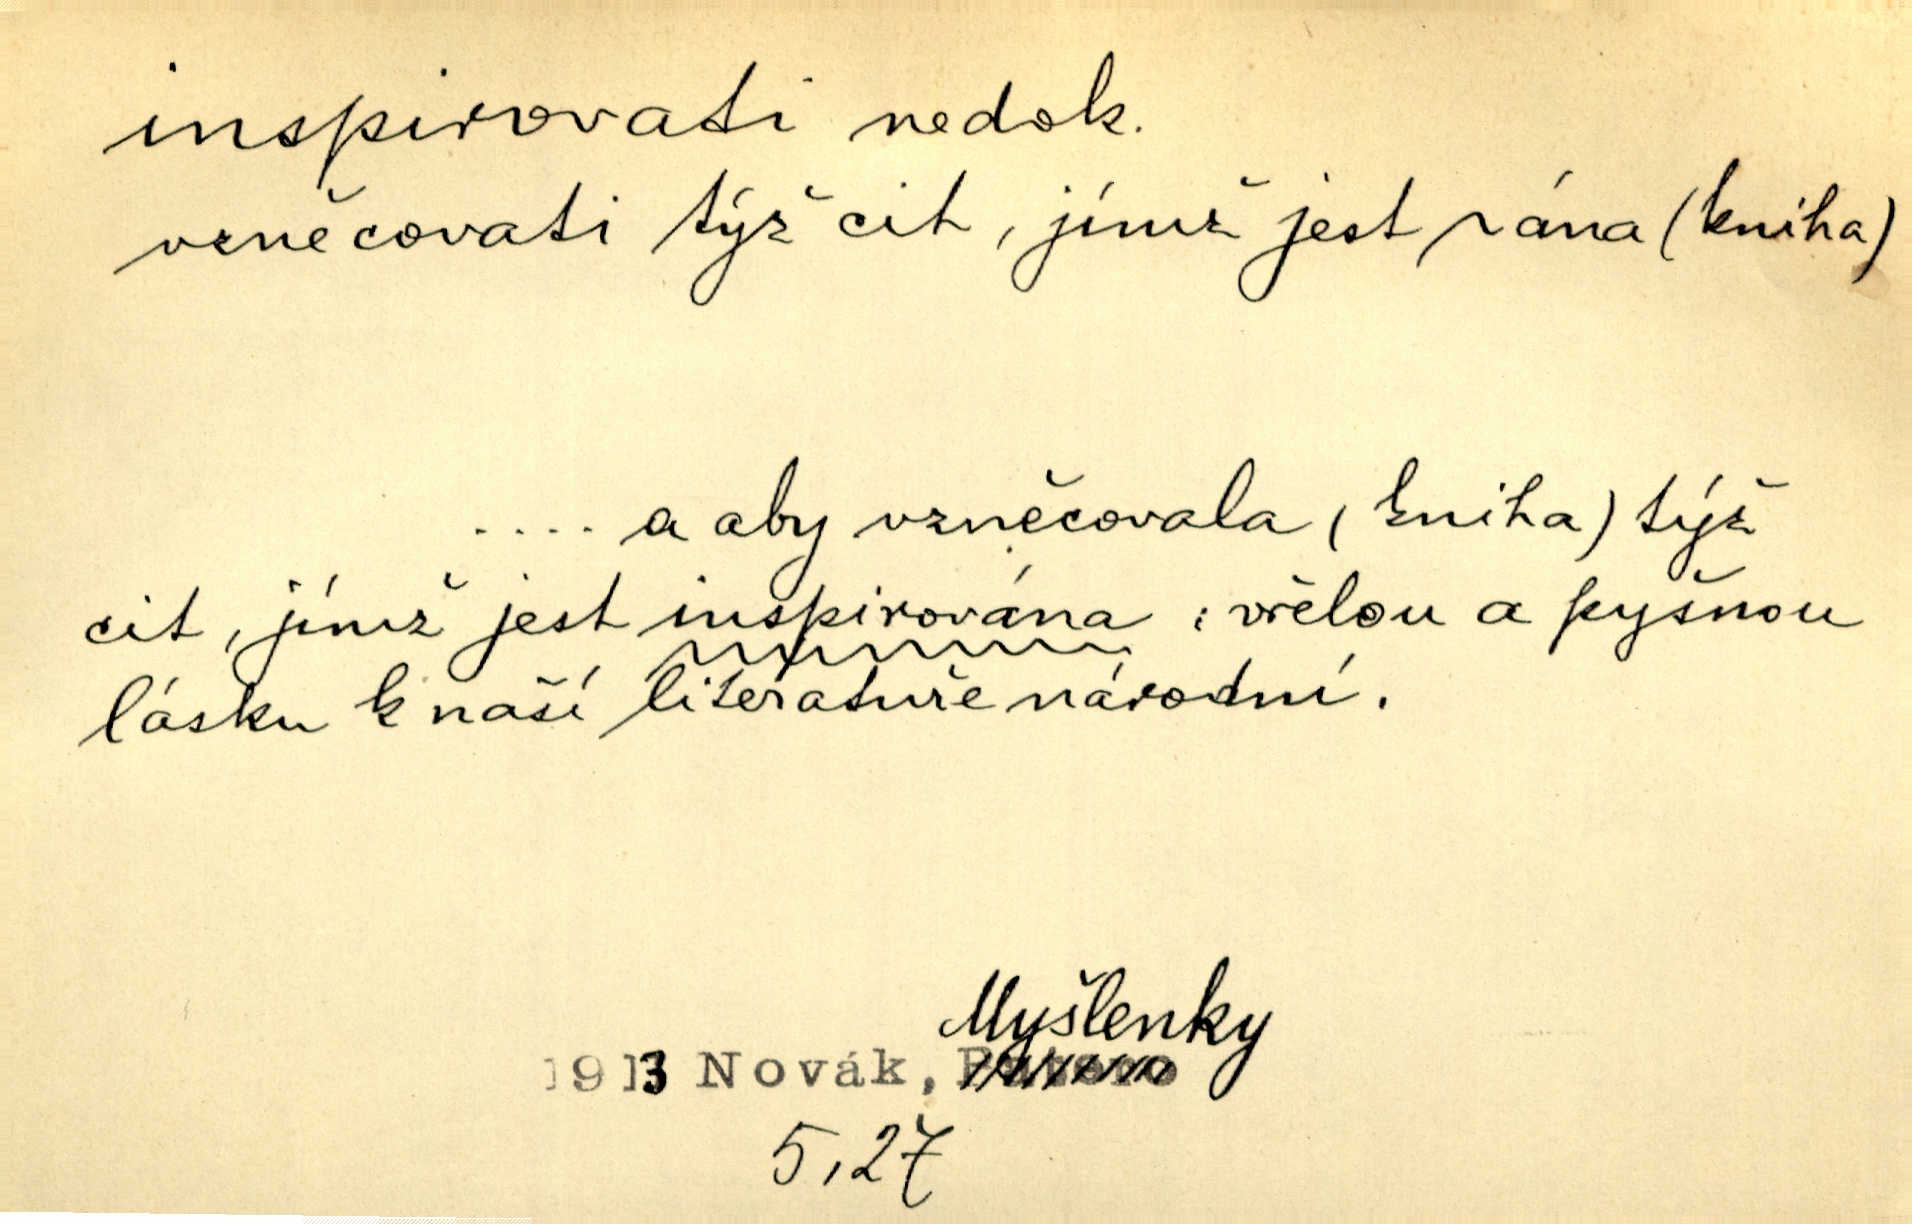 inspirovati nedok.
vzněcovati týž cit, jímž jest rána (kniha)
.... a aby vzněcovala (kniha) týž
cit, jímž jest inspirována: vřelou a pyšnou
lásku k naší literatuře národní.
Myšlenky
1913 Novák,
5,27